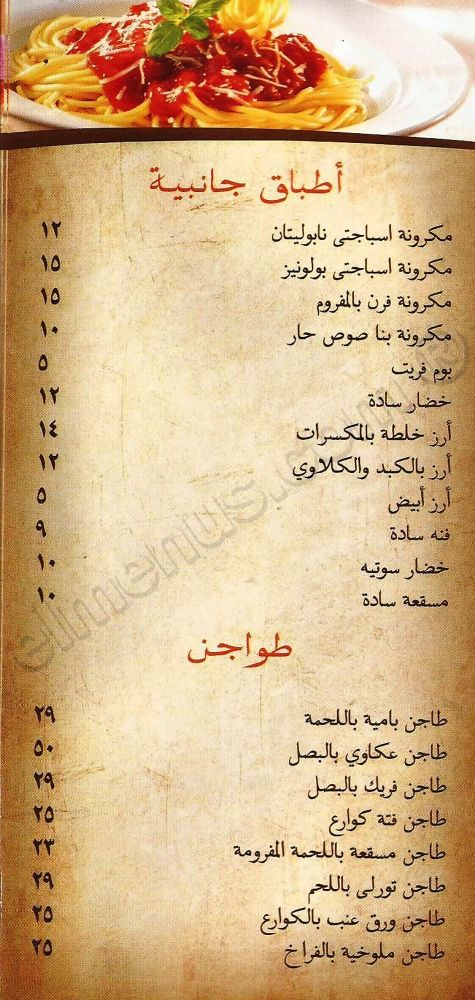 أطباق جانبية
مكرونة اسباجتى نابوليتان ١٢
مكرونة اسباجتى بولونيز ١٥
مكرونة فرن بالمفروم ١٥
مكرونة بنا صوص حار ١٠
بوم فريت ٥
خضار سادة ١٢
أرز خلطة بالمكسرات ١٤
أرز بالكبد والكلاوي ١٢
أرز أبيض ٥
فته سادة ٩
خضار سوتيه ١٠
مسقعة سادة ١٠
طواجن
طاجن بامية باللحمة ٢٩
طاجن عكاوي بالبصل ٥٠
طاجن فريك بالبصل ٢٩
طاجن فتة كوارع ٢٥
طاجن مسقعة باللحمة المفرومة ٢٣
طاجن تورلى باللحم ٢٩
طاجن ورق عنب بالكوارع ٢٥
طاجن ملوخية بالفراخ ٢٥
elmenus.com